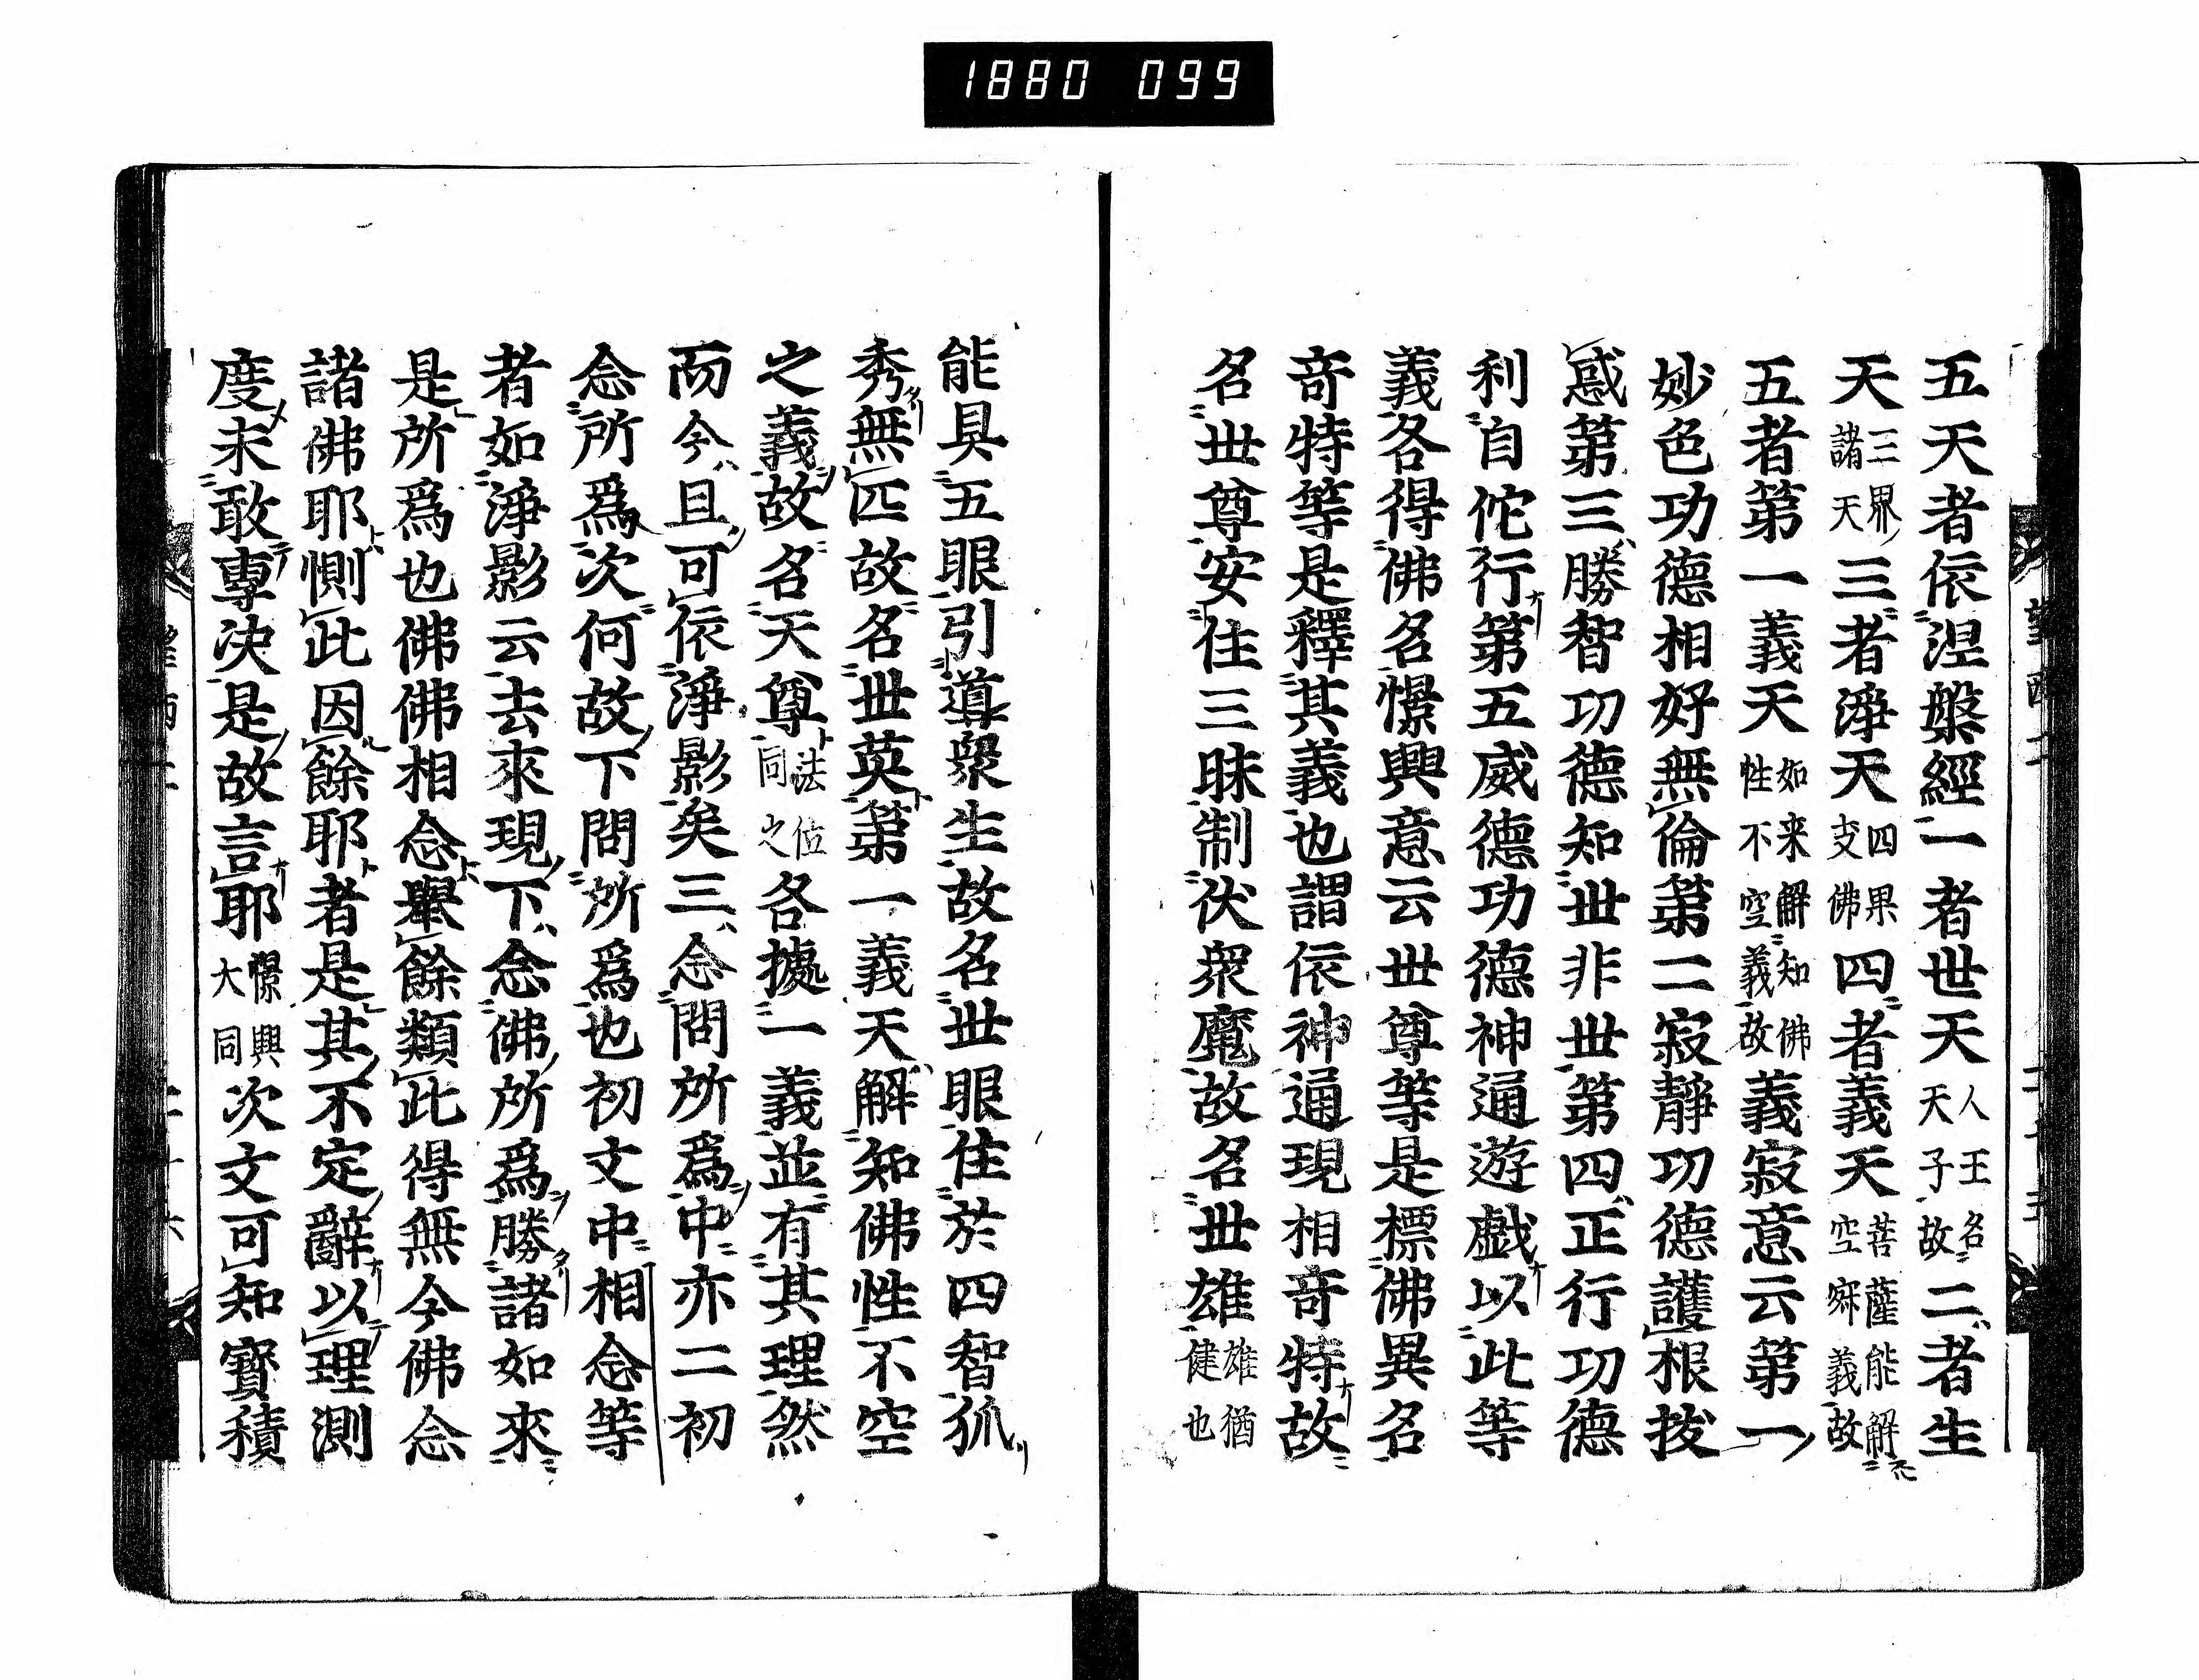 1880 099
五天者依涅槃經一者世天人王名天子故二者生
天三界諸天三者淨天四果支佛四者義天菩薩能解空寂義故
五者第一義天如来解知佛性不空義故義寂意云第一
妙色功德相好無倫第二寂靜功德護根拔
惑第三勝智功德知世非世第四正行功德
利自佗行第五威德功德神通遊戯以此等
義各得佛名憬興意云世尊等是標佛異名
奇特等是釋其義也謂依神通現相奇特故
名世尊安住三昧制伏衆魔故名世雄雄猶健也
能具五眼引導衆生故名世眼住於四智狐
秀無匹故名世英第一義天解知佛性不空
之義故名天尊法位同之各據一義並有其理然
而今且可依淨影矣三念問所爲中亦二初
念所爲次何故下問所爲也初文中相念等
者如淨影云去來現下念佛所爲勝諸如來
是所爲也佛佛相念舉餘類此得無今佛念
諸佛耶惻此因餘耶者是其不定辭以理測
度未敢專決是故言耶憬興大同次文可知寶積